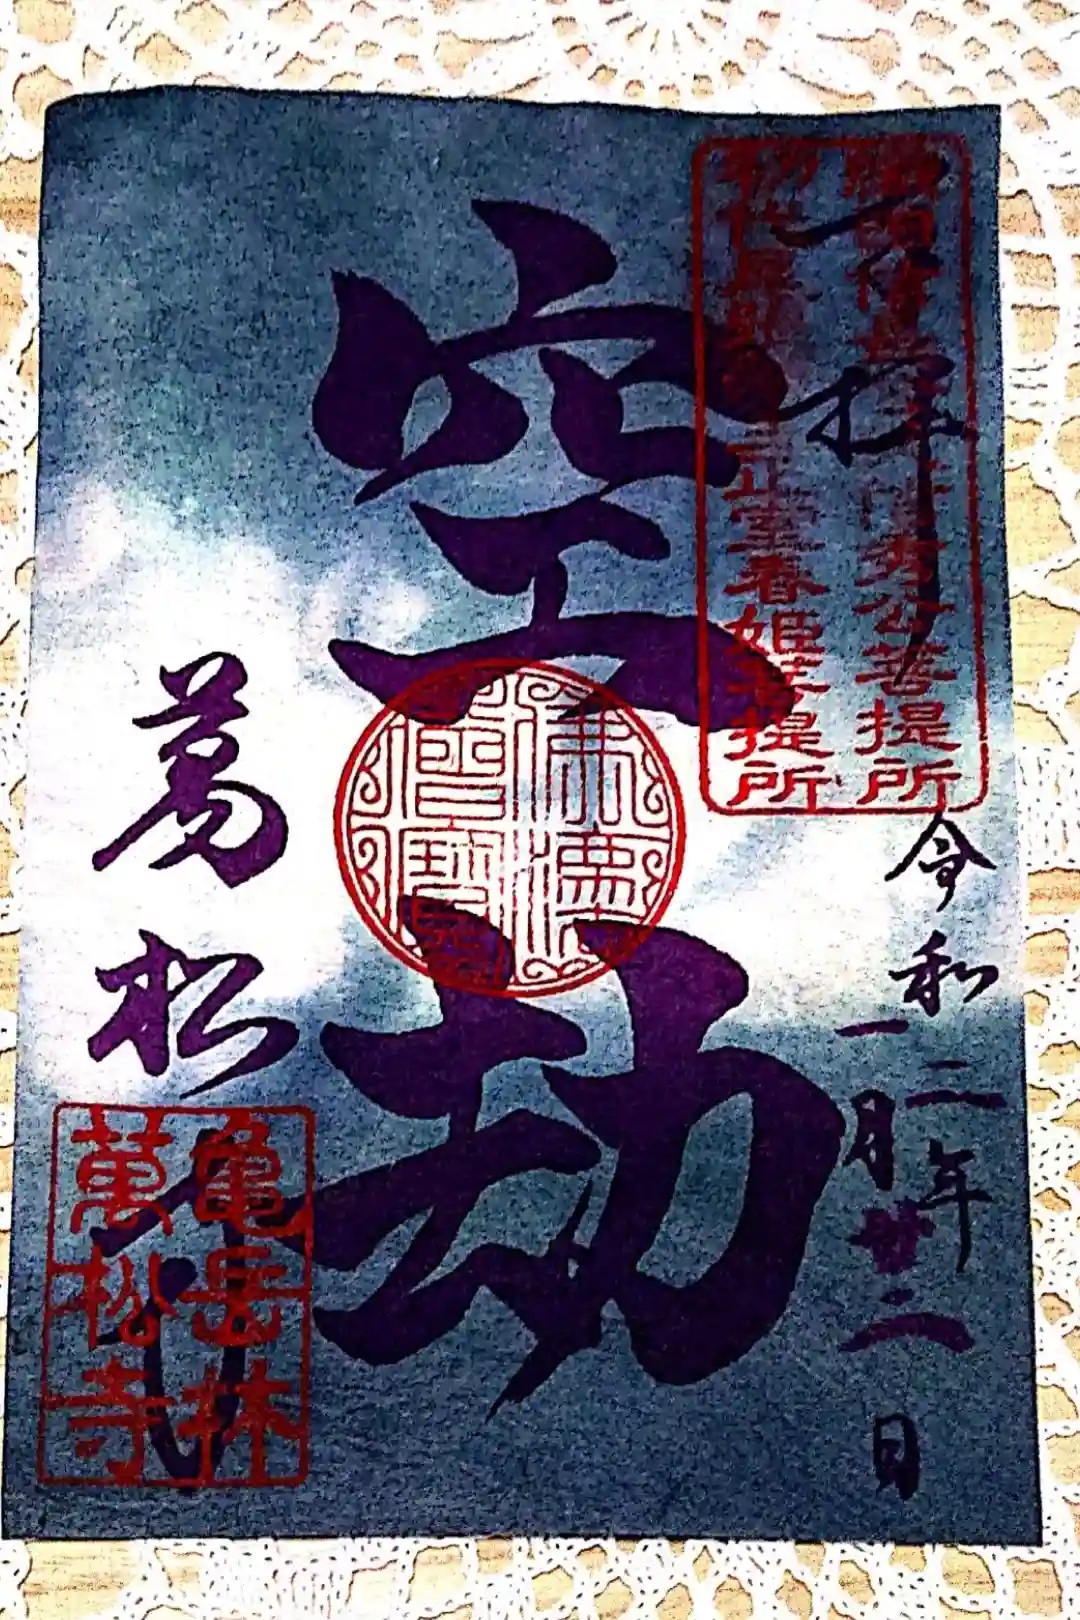 拝
信秀公菩提所
正室春姫菩提所
令和二年
一月廿二日
空劫
萬松寺
亀岳林
萬松寺